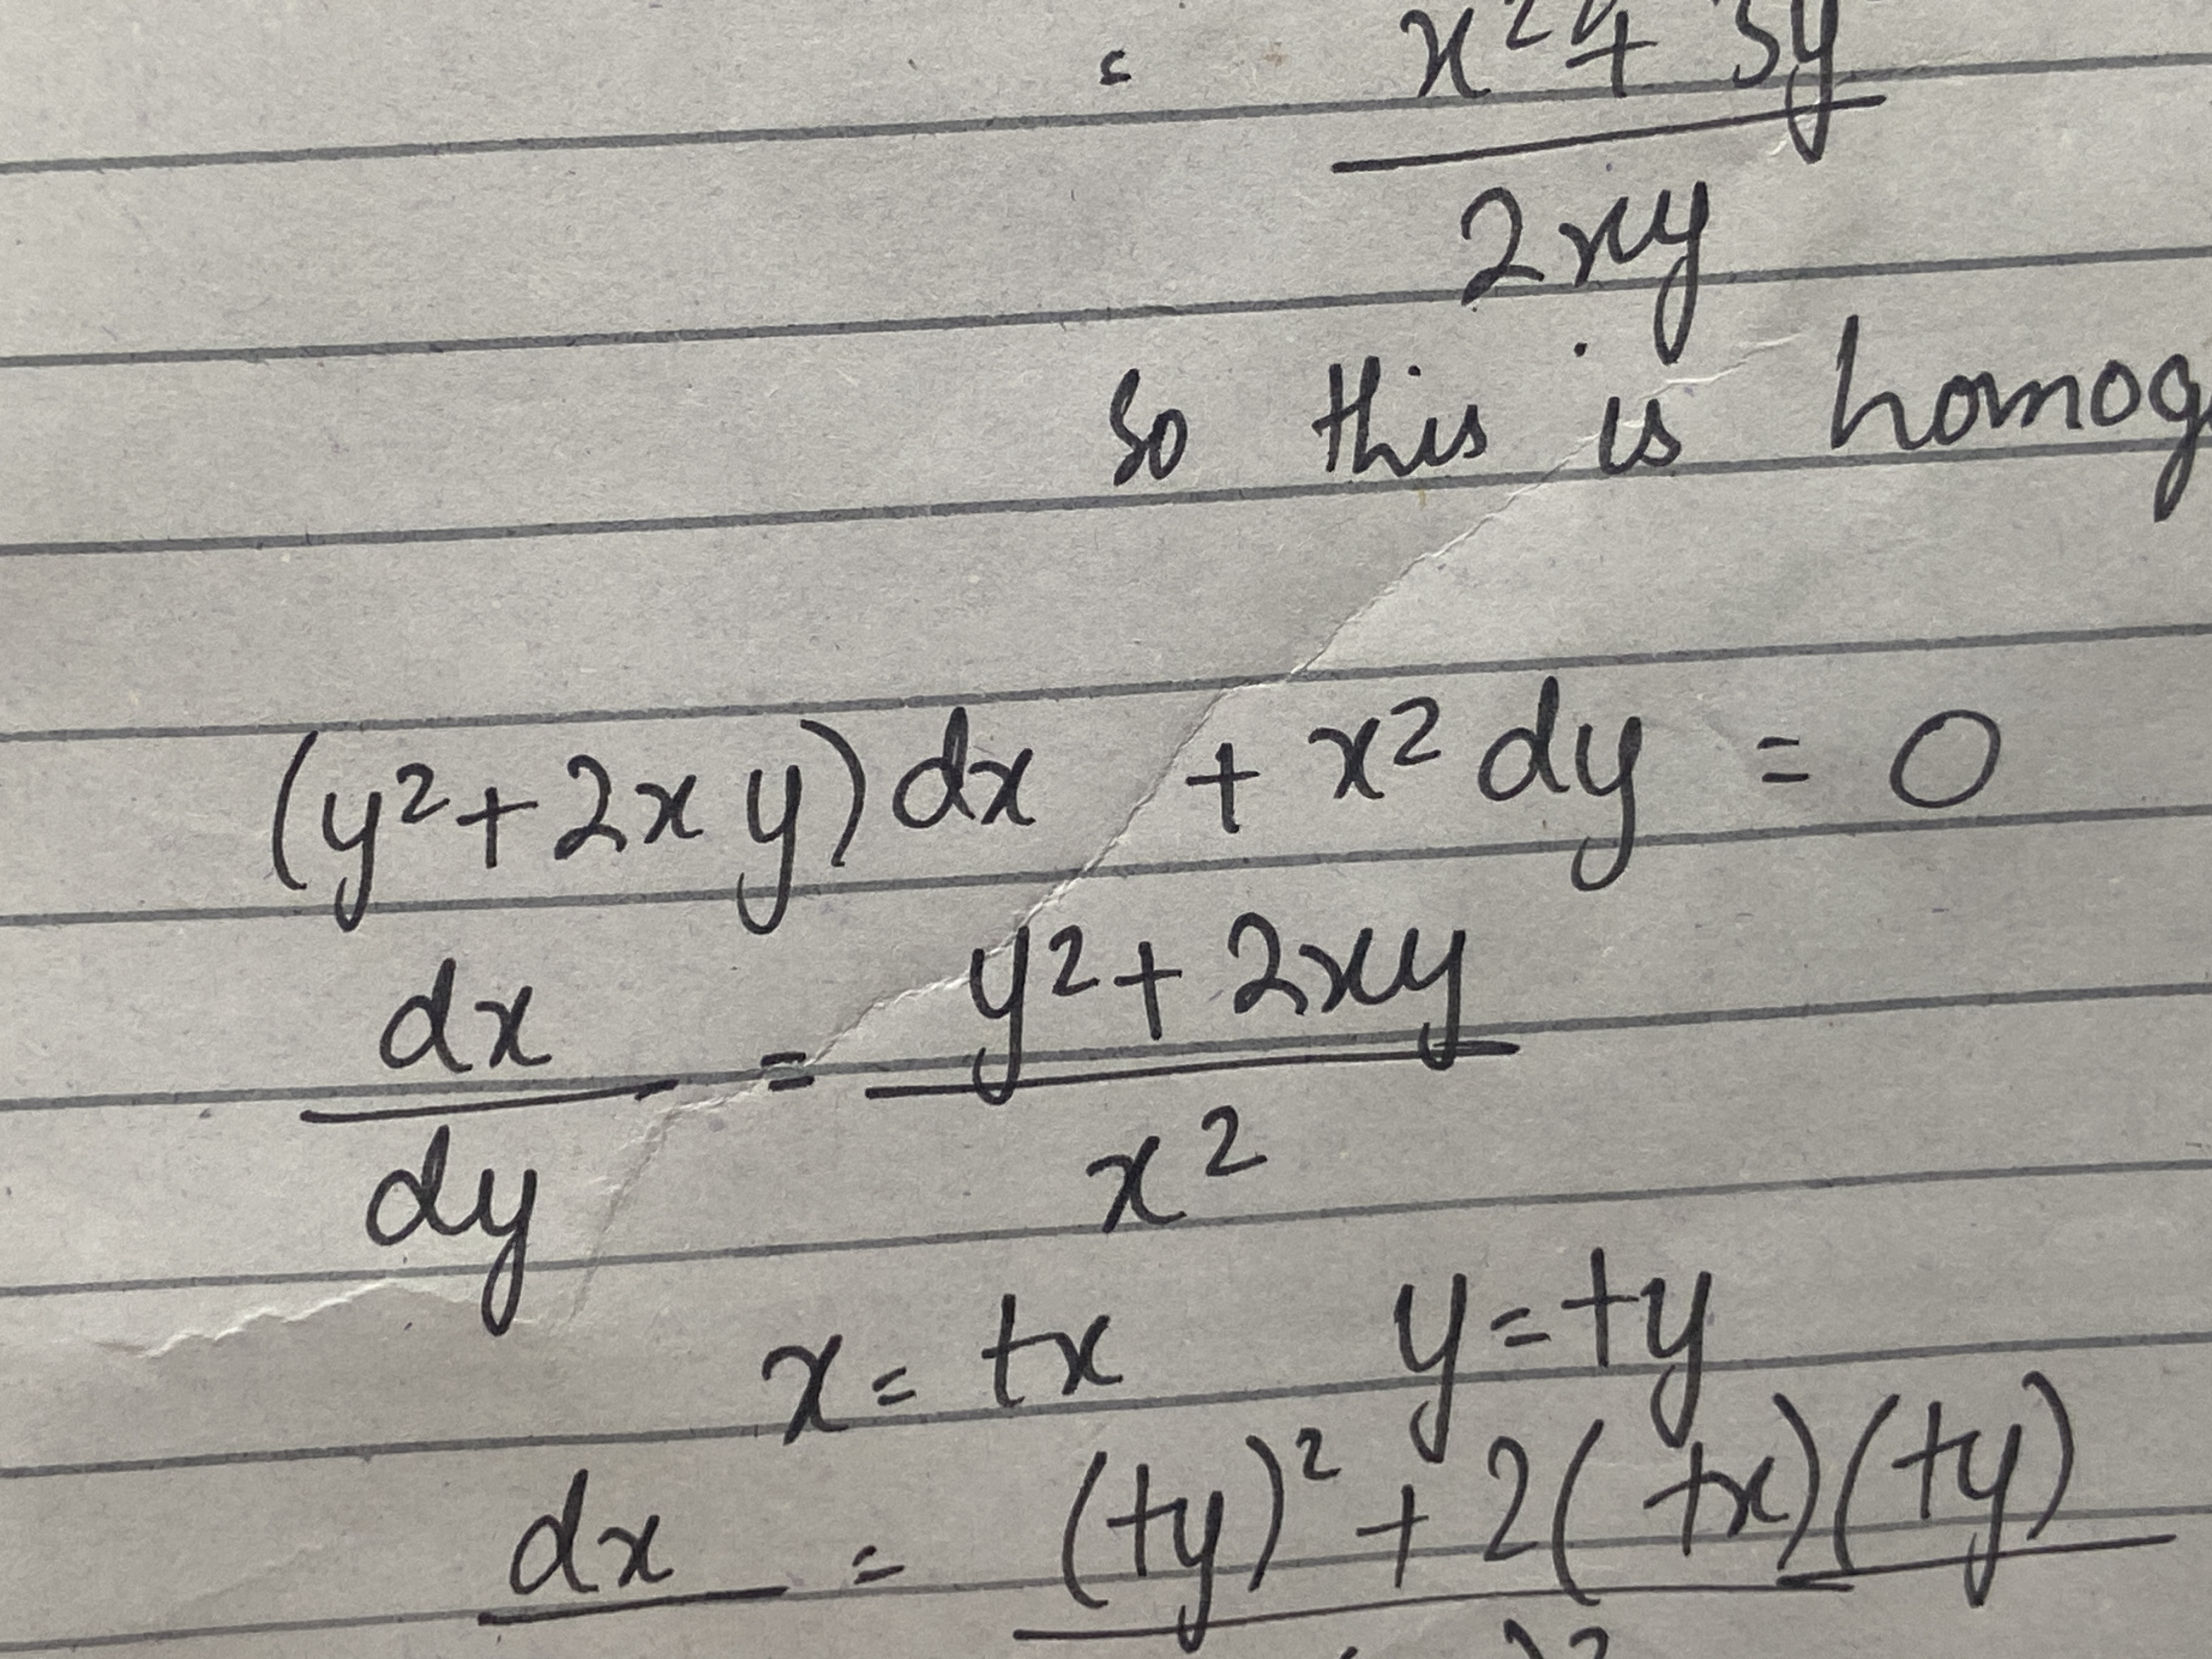 = x² + 3y
2xy
so this is homog
(y² + 2xy) dx + x² dy = 0
dx = y² + 2xy
dy x²
x = tx y = ty
dx = (ty)² + 2(tx)(ty)